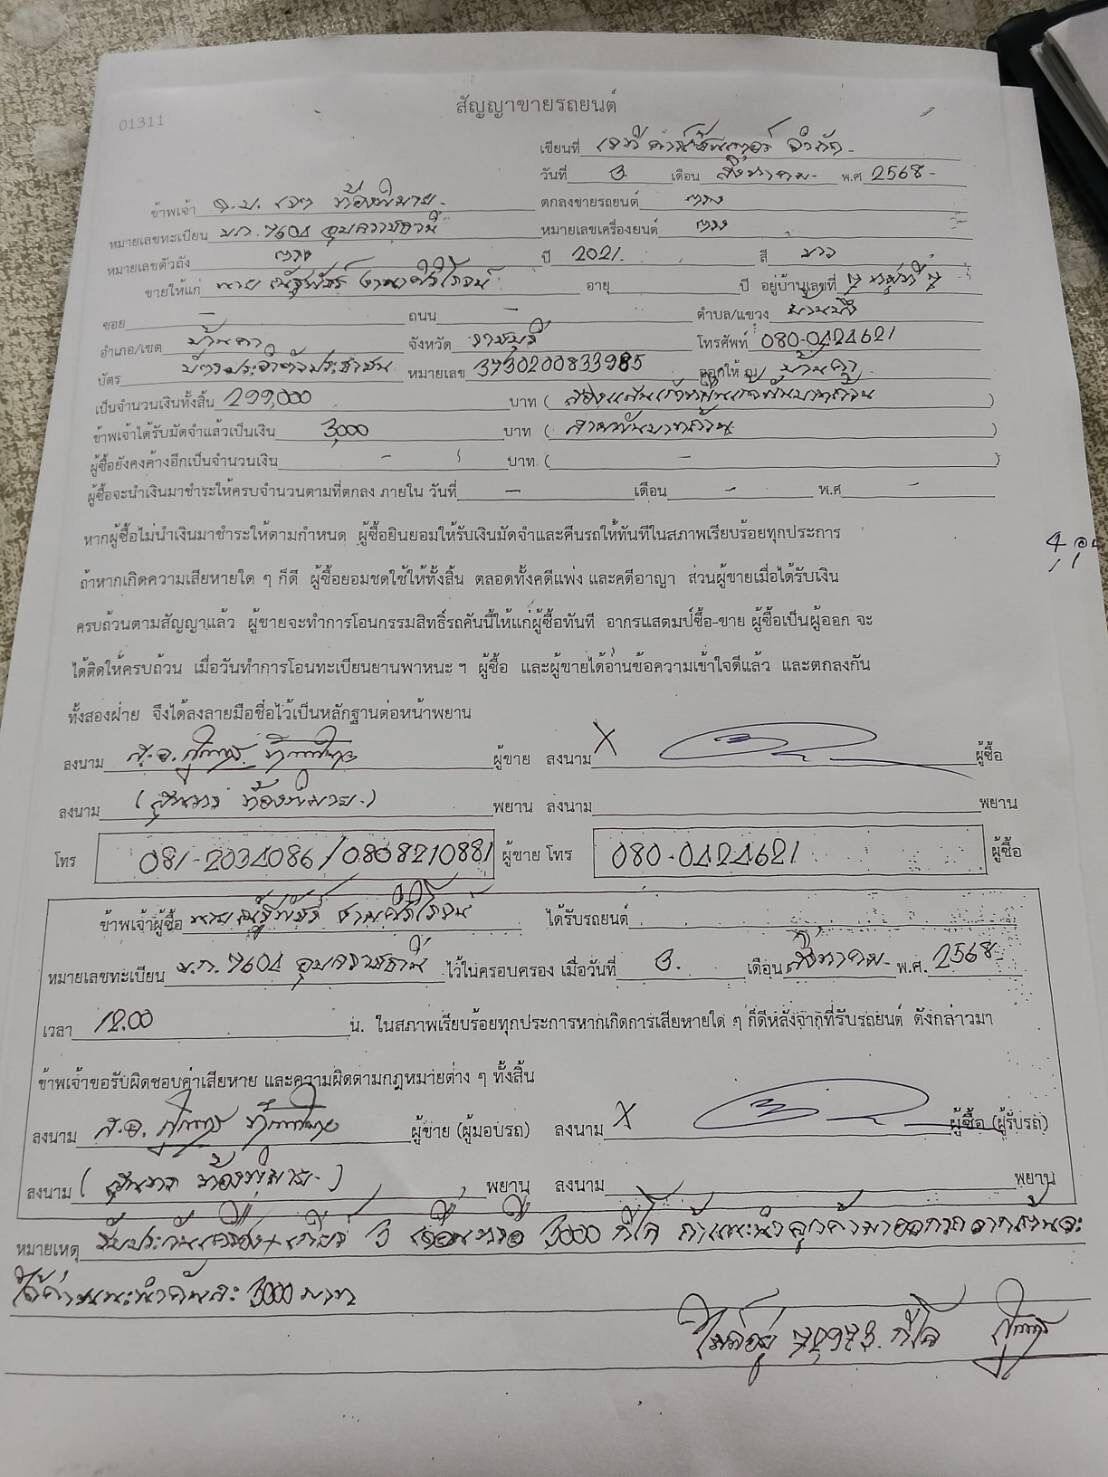 01311
สัญญาขายรถยนต์
เขียนที่ จำกัด
วันที่ 3 เดือน สิงหาคม พ.ศ 2568
ข้าพเจ้า ตกลงขายรถยนต์
หมายเลขทะเบียน 7604 อุบลราชธานี หมายเลขเครื่องยนต์
หมายเลขตัวถัง ปี 2021 สี ขาว
ขายให้แก่ นาย อายุ ปี อยู่บ้านเลขที่
ซอย - ถนน - ตำบล/แขวง
อำเภอ/เขต บ้านคา จังหวัด ราชบุรี โทรศัพท์ 080-0424621
บัตร บัตรประจำตัวประชาชน หมายเลข 3730200833985 ออกให้ ณ บ้านคา
เป็นจำนวนเงินทั้งสิ้น 299,000 บาท ( สองแสนเก้าหมื่นเก้าพันบาทถ้วน )
ข้าพเจ้าได้รับมัดจำแล้วเป็นเงิน 3,000 บาท ( สามพันบาทถ้วน )
ผู้ซื้อยังคงค้างอีกเป็นจำนวนเงิน - บาท ( - )
ผู้ซื้อจะนำเงินมาชำระให้ครบจำนวนตามที่ตกลง ภายใน วันที่ - เดือน - พ.ศ -
หากผู้ซื้อไม่นำเงินมาชำระให้ตามกำหนด ผู้ซื้อยินยอมให้รับเงินมัดจำและคืนรถให้ทันทีในสภาพเรียบร้อยทุกประการ
ถ้าหากเกิดความเสียหายใด ๆ ก็ดี ผู้ซื้อยอมชดใช้ให้ทั้งสิ้น ตลอดทั้งคดีแพ่ง และคดีอาญา ส่วนผู้ขายเมื่อได้รับเงิน
ครบถ้วนตามสัญญาแล้ว ผู้ขายจะทำการโอนกรรมสิทธิ์รถคันนี้ให้แก่ผู้ซื้อทันที อากรแสตมป์ซื้อ-ขาย ผู้ซื้อเป็นผู้ออก จะ
ได้ติดให้ครบถ้วน เมื่อวันทำการโอนทะเบียนยานพาหนะ ฯ ผู้ซื้อ และผู้ขายได้อ่านข้อความเข้าใจดีแล้ว และตกลงกัน
ทั้งสองฝ่าย จึงได้ลงลายมือชื่อไว้เป็นหลักฐานต่อหน้าพยาน
ลงนาม ผู้ขาย ลงนาม X ผู้ซื้อ
ลงนาม พยาน ลงนาม พยาน
โทร 081-2034086/0868210881 ผู้ขาย โทร 080-0424621 ผู้ซื้อ
ข้าพเจ้าผู้ซื้อ นาย ได้รับรถยนต์
หมายเลขทะเบียน 7604 อุบลราชธานี ไว้ในครอบครอง เมื่อวันที่ 3 เดือน สิงหาคม พ.ศ. 2568
เวลา 12.00 น. ในสภาพเรียบร้อยทุกประการหากเกิดการเสียหายใด ๆ ก็ดีหลังจากที่รับรถยนต์ ดังกล่าวมา
ข้าพเจ้าขอรับผิดชอบค่าเสียหาย และความผิดตามกฎหมายต่าง ๆ ทั้งสิ้น
ลงนาม ผู้ขาย (ผู้มอบรถ) ลงนาม X ผู้ซื้อ (ผู้รับรถ)
ลงนาม พยาน ลงนาม พยาน
หมายเหตุ รับประกันเครื่อง+เกียร์ 3 เดือนหรือ 3000 กิโล ถ้าแนะนำลูกค้ามาออกรถจากเต้นจะ
ได้ค่าแนะนำคันละ 3000 บาท
ไมล์อยู่ กิโล